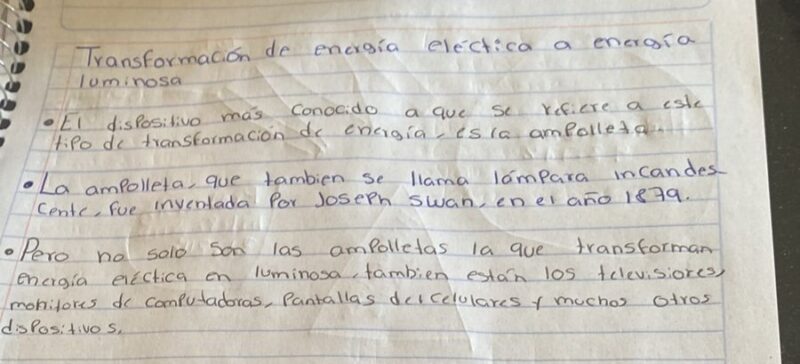 Transformación de energía eléctica a energía
luminosa
• El dispositivo más conocido a que se refiere a este
tipo de transformación de energía, es la ampolleta.
• La ampolleta, que tambien se llama lámpara incandes-
cente, fue inventada por Joseph Swan, en el año 1879.
• Pero no solo son las ampolletas la que transforman
energía eléctica en luminosa, tambien están los televisiores,
monitores de computadoras, pantallas del celulares y muchos otros
dispositivos.